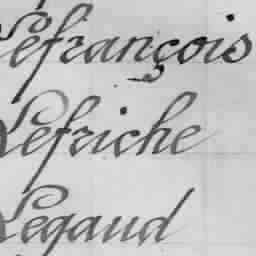 Lefrançois
Lefriche
Legaud